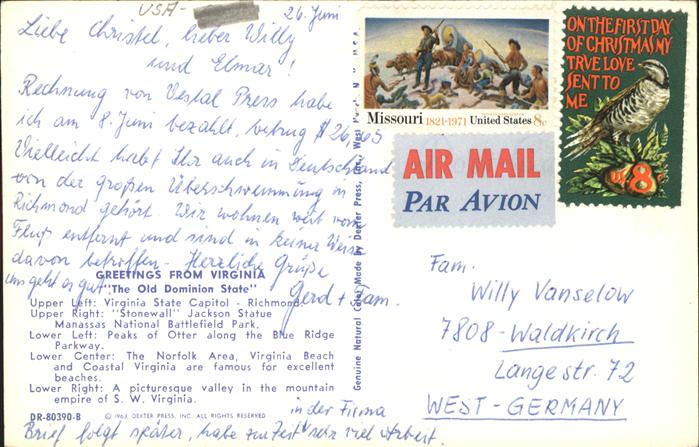 USA-
26. Juni
Liebe Christel, lieber Willy
und Elmar!
Rechnung von Vestal Press habe
ich am 8. Juni bezahlt, betrug $ 26,65
Vielleicht habt Ihr auch in Deutschland
von der großen Überschwemmung in
Richmond gehört. Wir wohnen weit vom
Fluß entfernt und sind in keiner Weise
davon betroffen. Herzliche Grüße
uns geht es gut
Gerd + Fam.
GREETINGS FROM VIRGINIA
"The Old Dominion State"
Upper Left: Virginia State Capitol - Richmond.
Upper Right: "Stonewall" Jackson Statue
Manassas National Battlefield Park.
Lower Left: Peaks of Otter along the Blue Ridge
Parkway.
Lower Center: The Norfolk Area, Virginia Beach
and Coastal Virginia are famous for excellent
beaches.
Lower Right: A picturesque valley in the mountain
empire of S. W. Virginia.
DR-80390-B
© 1963, DEXTER PRESS, INC. ALL RIGHTS RESERVED
in der Firma
Brief folgt später, habe zur Zeit sehr viel Arbeit.
Genuine Natural Color Made by Dexter Press, Inc., West
Missouri 1821-1971 United States 8c
ON THE FIRST DAY
OF CHRISTMAS MY
TRVE LOVE
SENT TO
ME
US 8
AIR MAIL
PAR AVION
Fam.
Willy Vanselow
7808-Waldkirch
Langestr. 72
WEST-GERMANY